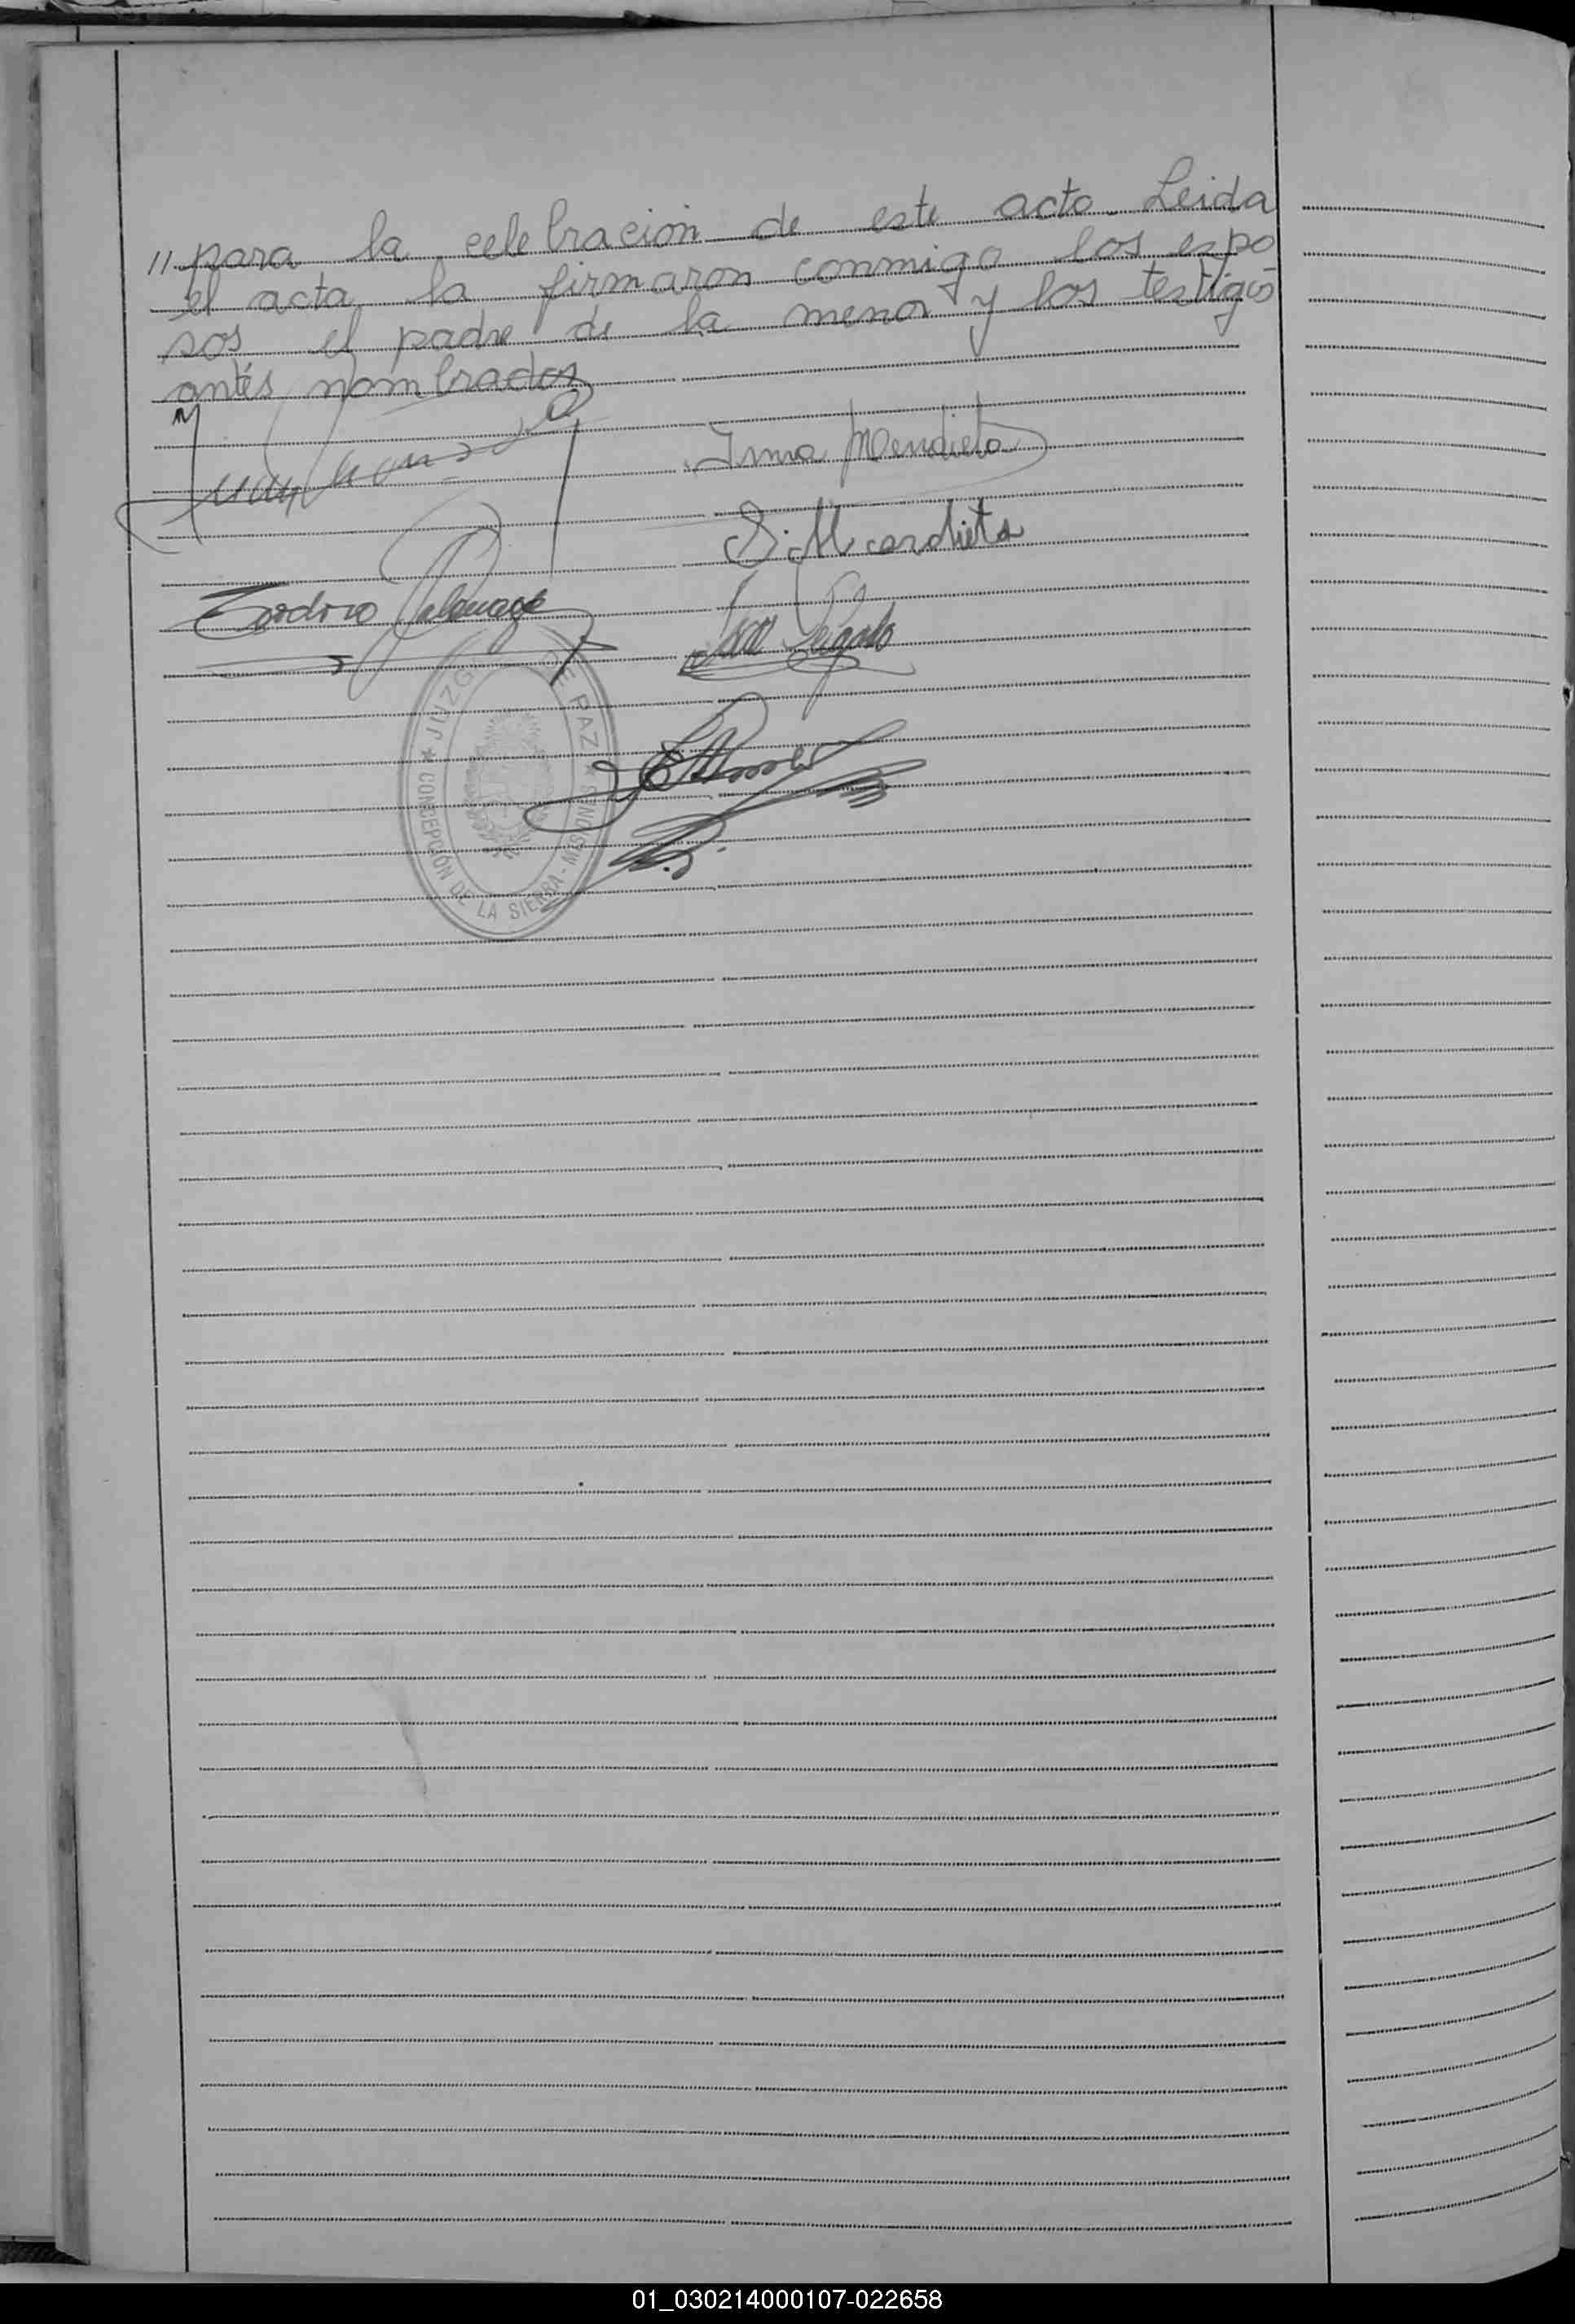 // para la celebración de este acto. Leida
el acta la firmaron conmigo los espo
sos el padre de la menor y los testigos
antes nombrados
Irma Mendieta
S. Mendieta
JUZG DE PAZ
CONCEPCIÓN DE LA SIERRA - MISIONES
01_030214000107-022658